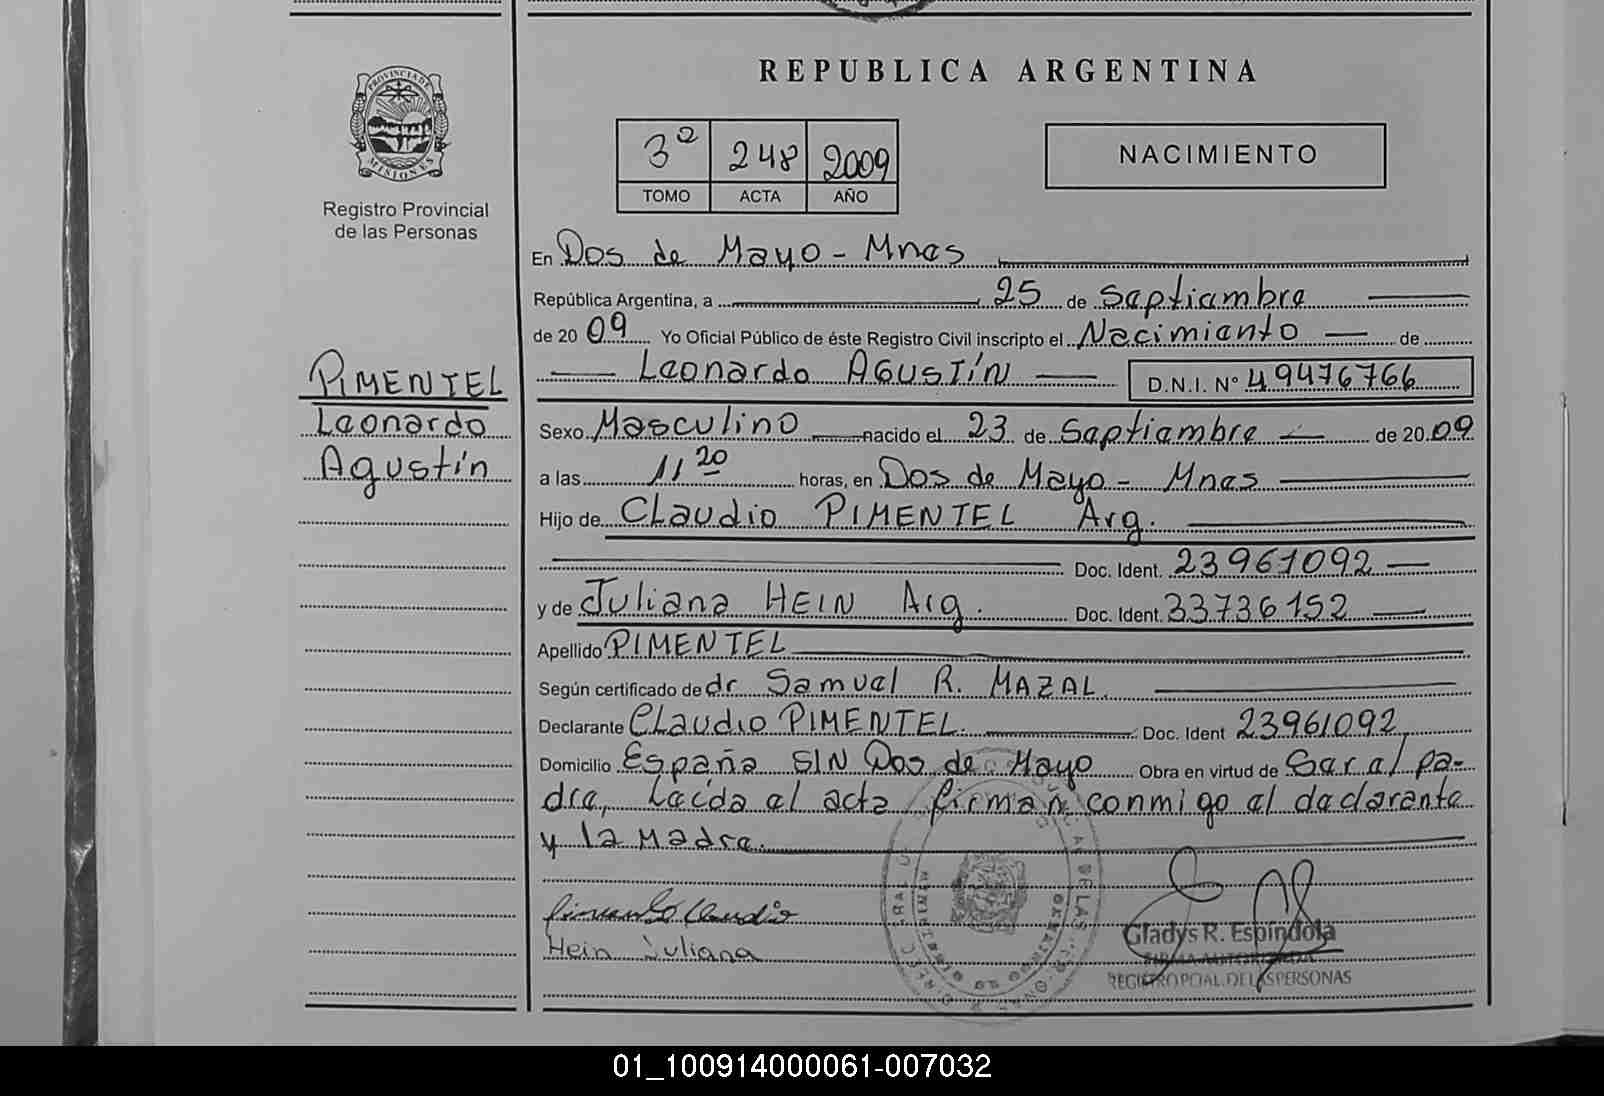 REPUBLICA ARGENTINA
PROVINCIA DE
MISIONES
Registro Provincial
de las Personas
3º 248 2009
TOMO ACTA AÑO
NACIMIENTO
En Dos de Mayo - Mnes
República Argentina, a 25 de Septiembre
de 20 09 Yo Oficial Público de éste Registro Civil inscripto el Nacimiento de
Leonardo AGUSTÍN D.N.I. Nº 49476766
PIMENTEL
Leonardo
Agustín
Sexo Masculino nacido el 23 de Septiembre de 20 09
a las 11 20 horas, en Dos de Mayo - Mnes
Hijo de CLaudio PIMENTEL Arg.
Doc. Ident. 23961092
y de Juliana HEIN Arg. Doc. Ident. 33736152
Apellido PIMENTEL
Según certificado de dr Samuel R. MAZAL
Declarante CLaudio PIMENTEL. Doc. Ident 23961092
Domicilio España S/N Dos de Mayo Obra en virtud de Ser el pa-
dre, Leída el acta firman conmigo el declarante
y la Madre.
Hein Juliana
Gladys R. Espindola
FIRMA AUTORIZADA
REGISTRO PCIAL. DE LAS PERSONAS
01_100914000061-007032